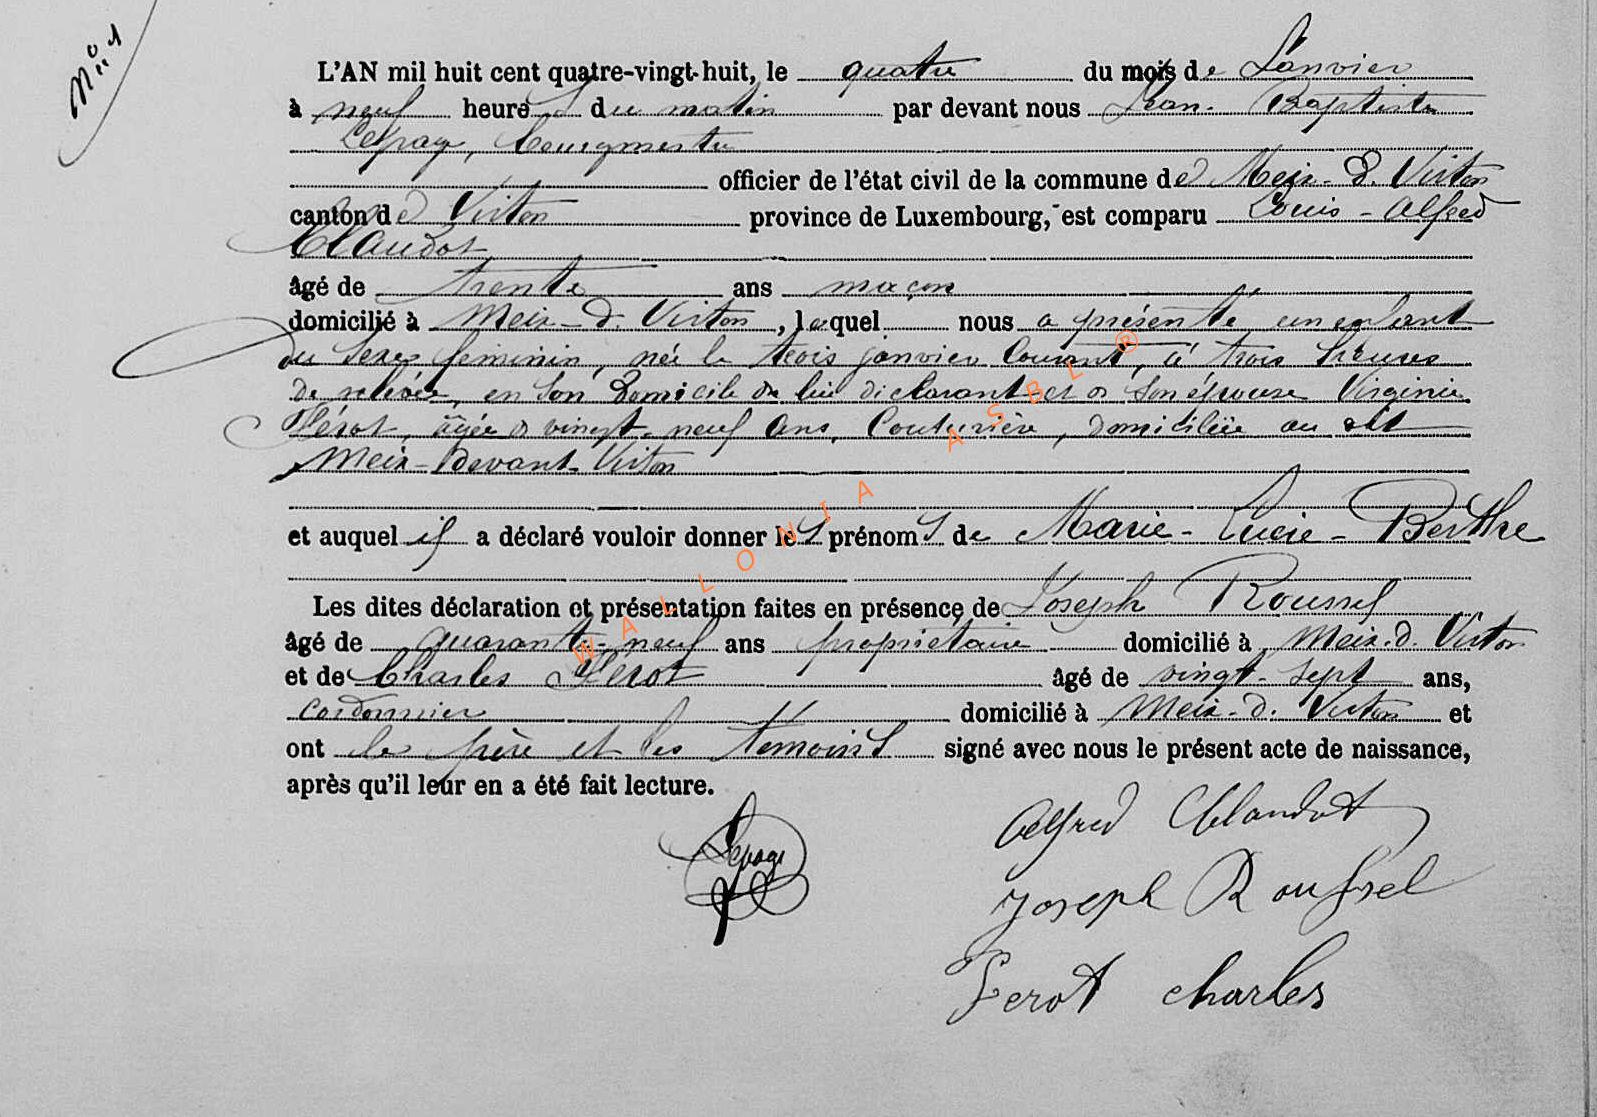 N° 1
L'AN mil huit cent quatre-vingt-huit, le quatre du mois de Janvier
à neuf heures du matin par devant nous Jean-Baptiste
Lepage, bourgmestre
officier de l'état civil de la commune de Meix-d. Virton
canton de Virton province de Luxembourg, est comparu Louis-Alfred
Claudot
âgé de trente ans maçon
domicilié à Meix-d. Virton, lequel nous a présenté un enfant
du sexe féminin, née le trois janvier courant, à trois heures
de relevée, en son domicile de lui déclarant et de son épouse Virginie
Férot, âgée de vingt-neuf ans, Couturière, domiciliée au dit
Meix-devant-Virton
et auquel il a déclaré vouloir donner les prénoms de Marie-Lucie-Berthe
Les dites déclaration et présentation faites en présence de Joseph Roussel
âgé de quarante-neuf ans propriétaire domicilié à Meix-d. Virton
et de Charles Férot âgé de vingt-sept ans,
cordonnier domicilié à Meix-d. Virton et
ont le père et les témoins signé avec nous le présent acte de naissance,
après qu'il leur en a été fait lecture.
Alfred Claudot
Lepage
Joseph Roussel
Ferot Charles
WALLONIA ASBL ®